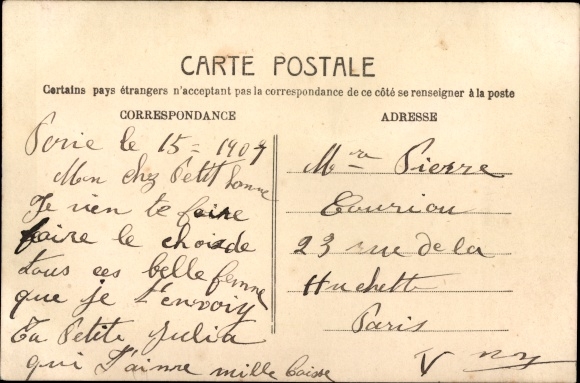 CARTE POSTALE
Certains pays étrangers n'acceptant pas la correspondance de ce côté se renseigner à la poste
CORRESPONDANCE
Paris le 15 = 1907
Mon cher Petit homme
Je vien te faire
faire le choix de
tous ces belle femme
que je t'envoiy
Ta Petite Julia
qui t'aime mille baisse
ADRESSE
Mr Pierre
Couriou
23 rue de la
Huchette
Paris
V